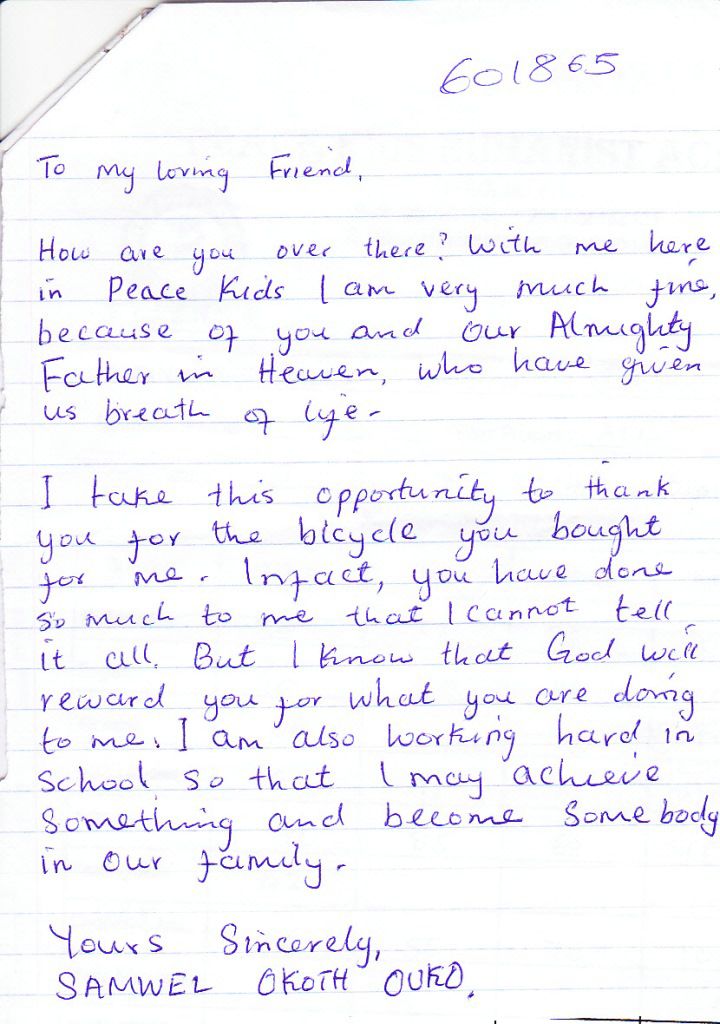 601865
To my loving Friend,
How are you over there? With me here
in Peace Kids I am very much fine,
because of you and Our Almighty
Father in Heaven, who have given
us breath of life.
I take this opportunity to thank
you for the bicycle you bought
for me. Infact, you have done
so much to me that I cannot tell
it all. But I know that God will
reward you for what you are doing
to me. I am also working hard in
school so that I may achieve
something and become Somebody
in our family.
Yours Sincerely,
SAMWEL OKOTH OUKO.